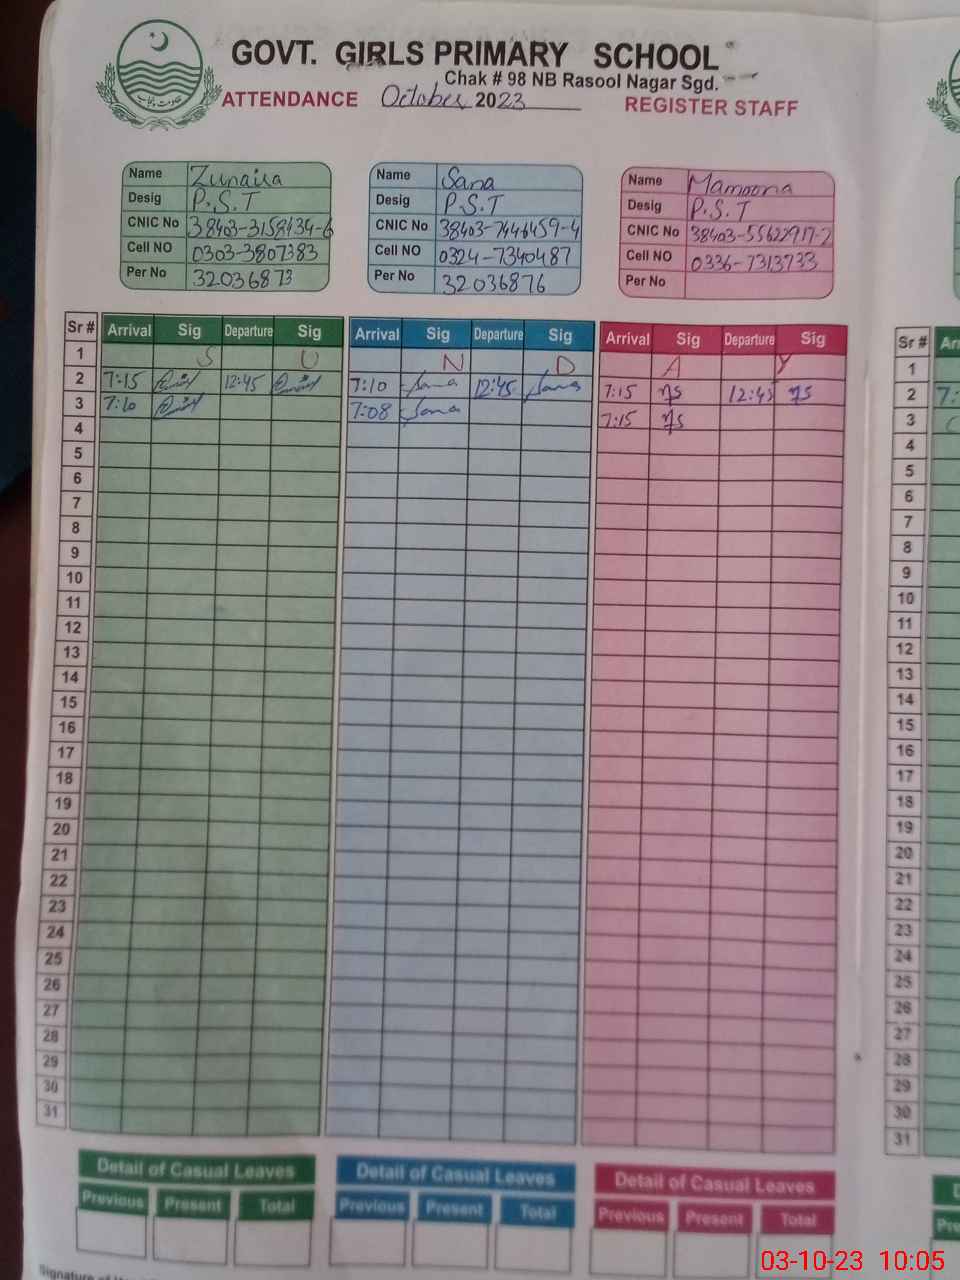 GOVT. GIRLS PRIMARY SCHOOL
Chak # 98 NB Rasool Nagar Sgd.
ATTENDANCE October 2023 REGISTER STAFF
Name Zunaira
Desig P.S.T
CNIC No 38403-3158434-6
Cell NO 0303-3807383
Per No 32036873
Name Sana
Desig P.S.T
CNIC No 38403-7446459-4
Cell NO 0324-7340487
Per No 32036876
Name Mamoona
Desig P.S.T
CNIC No 38403-5562297-2
Cell NO 0336-7313733
Per No
Sr # Arrival Sig Departure Sig Arrival Sig Departure Sig Arrival Sig Departure Sig Sr #
1 S U N D A Y 1
2 7:15 12:45 7:10 Sana 12:45 Sana 7:15 12:45 2
3 7:10 7:08 Sana 7:15 3
4 4
5 5
6 6
7 7
8 8
9 9
10 10
11 11
12 12
13 13
14 14
15 15
16 16
17 17
18 18
19 19
20 20
21 21
22 22
23 23
24 24
25 25
26 26
27 27
28 28
29 29
30 30
31 31
Detail of Casual Leaves Detail of Casual Leaves Detail of Casual Leaves
Previous Present Total Previous Present Total Previous Present Total
03-10-23 10:05